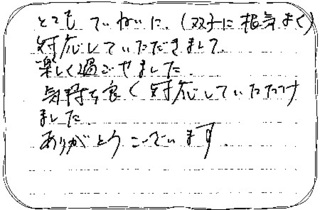 とても ていねいに、(双子に 根気よく)
対応していただきまして
楽しく過ごせました
気持ち良く対応していただけ
ました
ありがとうございます。